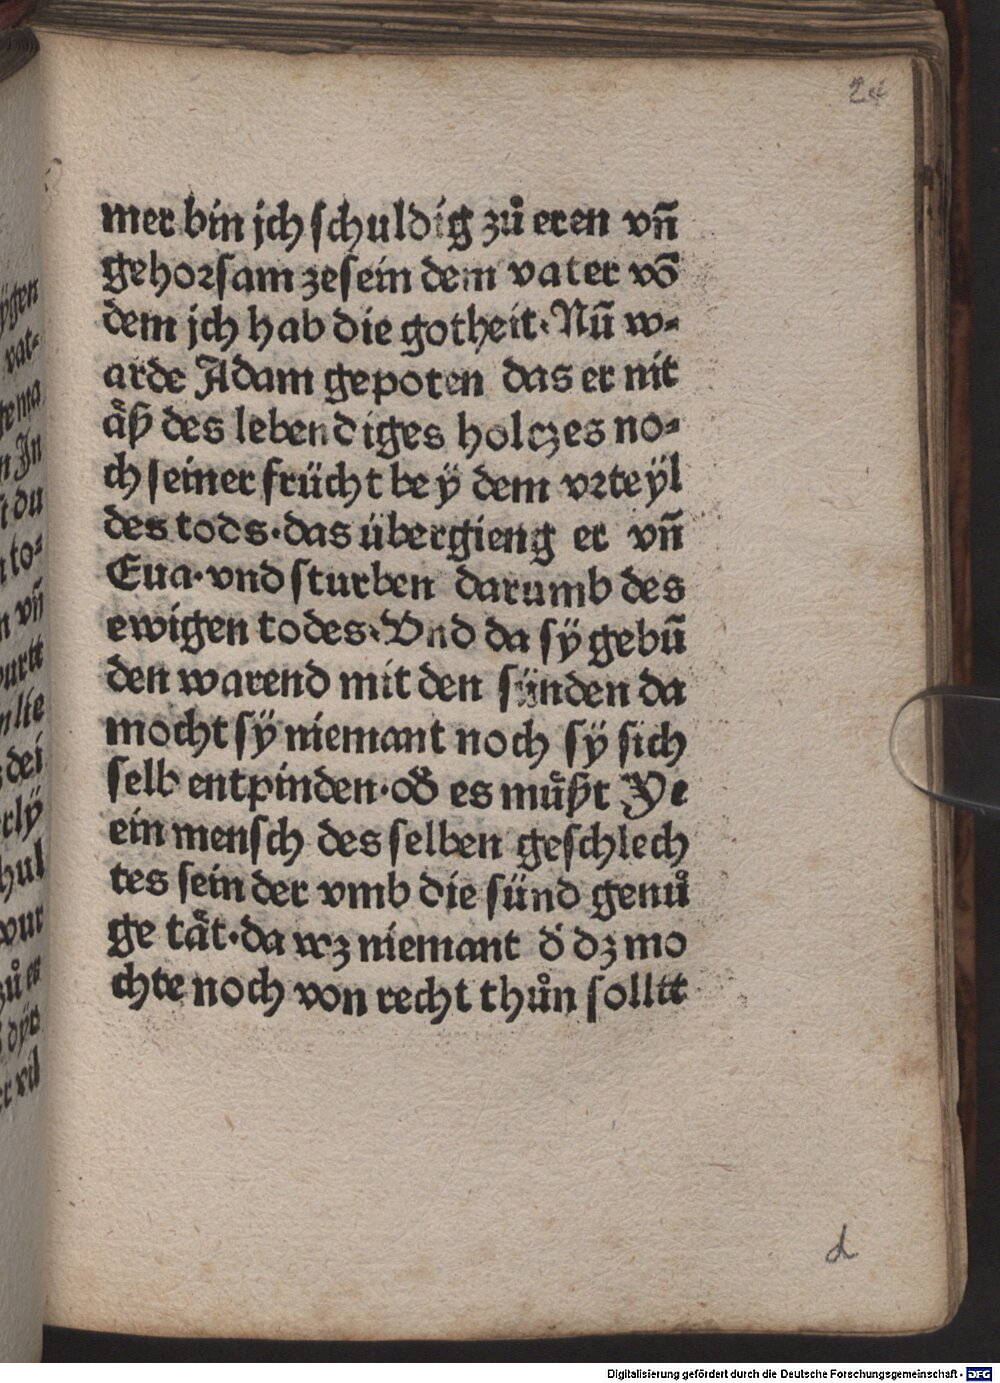 24
mer bin jch schuldig zů eren vñ
gehorsam zesein dem vater vō
dem jch hab die gotheit. Nū w-
arde Adam gepoten das er nit
äß des lebendiges holczes no-
ch seiner frücht beÿ dem vrteÿl
des tods. das übergieng er vñ
Eua. vnd sturben darumb des
ewigen todes. Vnd da sÿ gebū
den warend mit den sünden da
mocht sÿ niemant noch sÿ sich
selb entpinden. od̄ es můßt Ye
ein mensch des selben geschlech
tes sein der vmb die sünd genů
ge tät. da wz niemant d̄ dz mo
chte noch von recht thůn solltt
d
ÿgen
vat-
ma
n Jn
du
to-
n vñ
urtt
lie
dei
rlÿ
hul
vur
zů er
dÿs
er vil
Digitalisierung gefördert durch die Deutsche Forschungsgemeinschaft - DFG